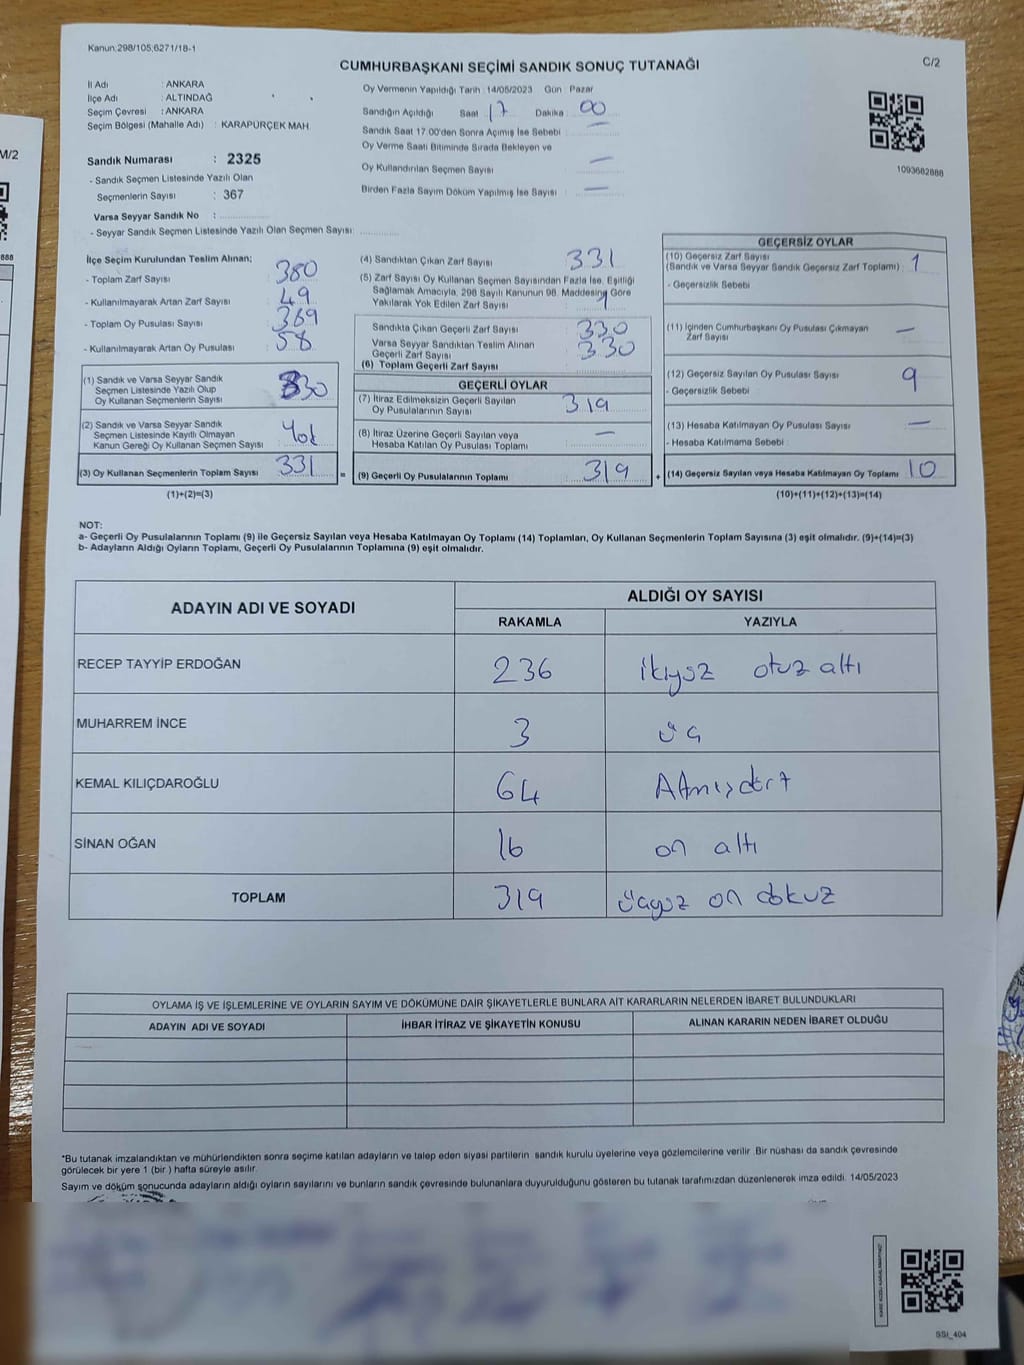 Kanun.298/105;6271/18-1
C/2
CUMHURBAŞKANI SEÇİMİ SANDIK SONUÇ TUTANAĞI
İl Adı : ANKARA
İlçe Adı : ALTINDAĞ
Seçim Çevresi : ANKARA
Seçim Bölgesi (Mahalle Adı) : KARAPÜRÇEK MAH.
Sandık Numarası : 2325
- Sandık Seçmen Listesinde Yazılı Olan
Seçmenlerin Sayısı : 367
Varsa Seyyar Sandık No :
- Seyyar Sandık Seçmen Listesinde Yazılı Olan Seçmen Sayısı:
Oy Vermenin Yapıldığı Tarih : 14/05/2023 Gün : Pazar
Sandığın Açıldığı Saat : 17 Dakika : 00
Sandık Saat 17.00'den Sonra Açımış İse Sebebi : —
Oy Verme Saati Bitiminde Sırada Bekleyen ve
Oy Kullandırılan Seçmen Sayısı : —
Birden Fazla Sayım Döküm Yapılmış İse Sayısı : —
1093682888
İlçe Seçim Kurulundan Teslim Alınan;
- Toplam Zarf Sayısı : 380
- Kullanılmayarak Artan Zarf Sayısı : 49
- Toplam Oy Pusulası Sayısı : 389
- Kullanılmayarak Artan Oy Pusulası : 58
(1) Sandık ve Varsa Seyyar Sandık
Seçmen Listesinde Yazılı Olup
Oy Kullanan Seçmenlerin Sayısı : 330
(2) Sandık ve Varsa Seyyar Sandık
Seçmen Listesinde Kayıtlı Olmayan
Kanun Gereği Oy Kullanan Seçmen Sayısı :
(3) Oy Kullanan Seçmenlerin Toplam Sayısı : 331
(1)+(2)=(3)
(4) Sandıktan Çıkan Zarf Sayısı : 331
(5) Zarf Sayısı Oy Kullanan Seçmen Sayısından Fazla İse, Eşitliği
Sağlamak Amacıyla, 298 Sayılı Kanunun 98. Maddesine Göre
Yakılarak Yok Edilen Zarf Sayısı : 1
Sandıkta Çıkan Geçerli Zarf Sayısı : 330
Varsa Seyyar Sandıktan Teslim Alınan
Geçerli Zarf Sayısı : 330
(6) Toplam Geçerli Zarf Sayısı :
GEÇERLİ OYLAR
(7) İtiraz Edilmeksizin Geçerli Sayılan
Oy Pusulalarının Sayısı : 319
(8) İtiraz Üzerine Geçerli Sayılan veya
Hesaba Katılan Oy Pusulası Toplamı : —
= (9) Geçerli Oy Pusulalarının Toplamı : 319
GEÇERSİZ OYLAR
(10) Geçersiz Zarf Sayısı
(Sandık ve Varsa Seyyar Sandık Geçersiz Zarf Toplamı) : 1
- Geçersizlik Sebebi :
(11) İçinden Cumhurbaşkanı Oy Pusulası Çıkmayan
Zarf Sayısı : —
(12) Geçersiz Sayılan Oy Pusulası Sayısı : 9
- Geçersizlik Sebebi :
(13) Hesaba Katılmayan Oy Pusulası Sayısı : —
- Hesaba Katılmama Sebebi :
+ (14) Geçersiz Sayılan veya Hesaba Katılmayan Oy Toplamı : 10
(10)+(11)+(12)+(13)=(14)
NOT:
a- Geçerli Oy Pusulalarının Toplamı (9) ile Geçersiz Sayılan veya Hesaba Katılmayan Oy Toplamı (14) Toplamları, Oy Kullanan Seçmenlerin Toplam Sayısına (3) eşit olmalıdır. (9)+(14)=(3)
b- Adayların Aldığı Oyların Toplamı, Geçerli Oy Pusulalarının Toplamına (9) eşit olmalıdır.
ADAYIN ADI VE SOYADI ALDIĞI OY SAYISI
RAKAMLA YAZIYLA
RECEP TAYYİP ERDOĞAN 236 ikiyüz otuz altı
MUHARREM İNCE 3 üç
KEMAL KILIÇDAROĞLU 64 Atmışdört
SİNAN OĞAN 16 on altı
TOPLAM 319 üçyüz on dokuz
OYLAMA İŞ VE İŞLEMLERİNE VE OYLARIN SAYIM VE DÖKÜMÜNE DAİR ŞİKAYETLERLE BUNLARA AİT KARARLARIN NELERDEN İBARET BULUNDUKLARI
ADAYIN ADI VE SOYADI İHBAR İTİRAZ VE ŞİKAYETİN KONUSU ALINAN KARARIN NEDEN İBARET OLDUĞU
*Bu tutanak imzalandıktan ve mühürlendikten sonra seçime katılan adayların ve talep eden siyasi partilerin sandık kurulu üyelerine veya gözlemcilerine verilir. Bir nüshası da sandık çevresinde
görülecek bir yere 1 (bir ) hafta süreyle asılır.
Sayım ve döküm sonucunda adayların aldığı oyların sayılarını ve bunların sandık çevresinde bulunanlara duyurulduğunu gösteren bu tutanak tarafımızdan düzenlenerek imza edildi. 14/05/2023
KARE KODU KARALAMAYINIZ!
SSI_404
M/2
888